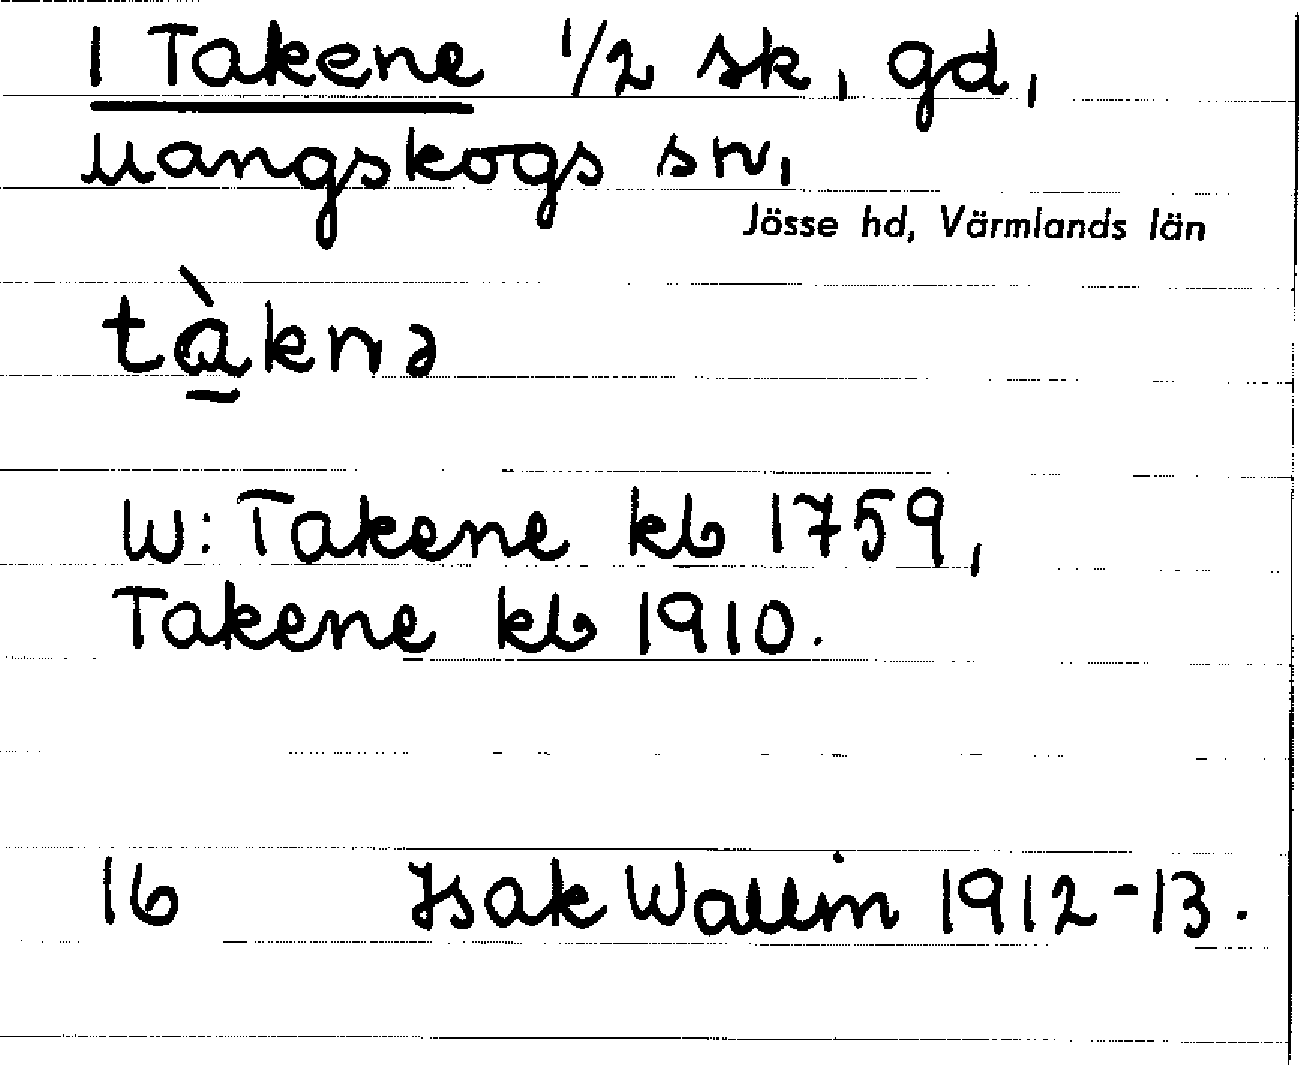 1 Takene 1/2 sk, gd,
Mangskogs sn,
Jösse hd, Värmlands län
tà̱knə
W: Takene kb 1759,
Takene kb 1910.
16 Isak Wallin 1912-13.